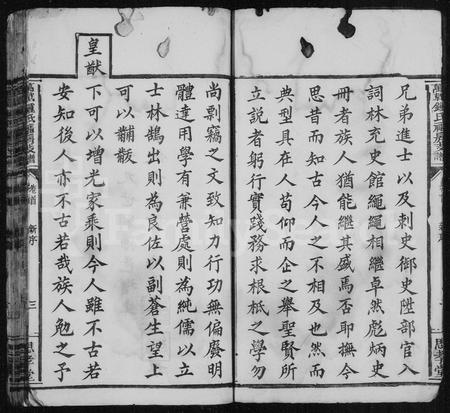 兄弟進士以及刺史御史陞部官入
詞林充史館繩繩相繼卓然彪炳史
冊者族人猶能繼其盛焉否耶撫今
思昔而知古今人之不相及也然而
典型具在人苟仰而企之舉聖賢所
立說者躬行實踐務求根柢之學勿
尚剽竊之文致知力行功無偏廢明
體達用學有兼營處則為純儒以立
士林鵠出則為良佐以副蒼生望上
可以黼黻
皇猷
下可以增光家乘則今人雖不古若
安知後人亦不古若哉族人勉之予
新序
三
思孝堂